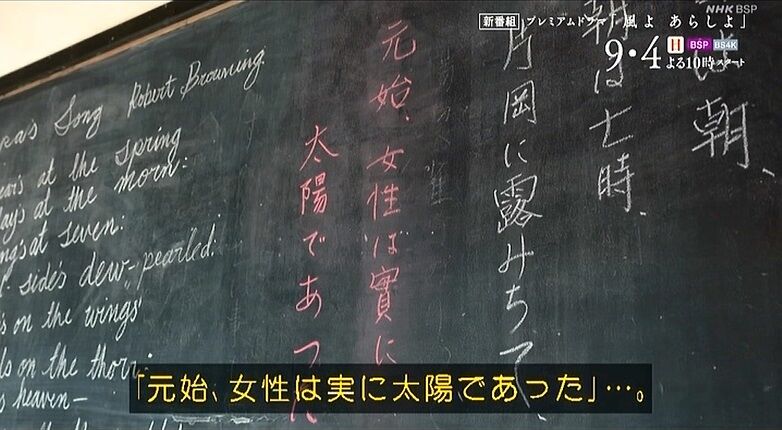 NHK BSP
新番組 プレミアムドラマ「風よ あらしよ」
9・4 H BSP BS4K よる10時スタート
は朝、
朝は七時、
片岡に露みちて、
元始、女性は實に
太陽であつた
Song Robert Browning
at the spring
at the morn:
at seven:
side's dew-pearled:
on the wings
on the thorn
heaven—
「元始、女性は実に太陽であった」…。